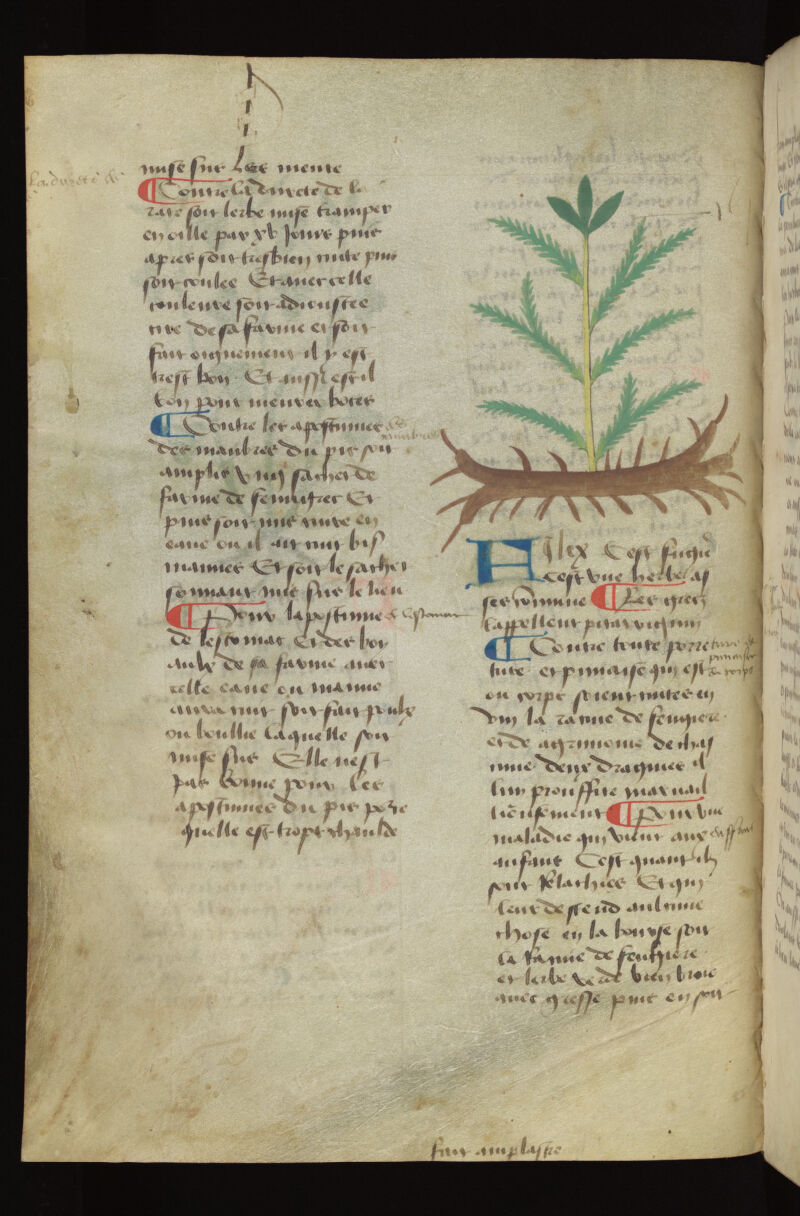 mise sur les mente
Contre la durete de la
rate soit lerbe mise tramper
en oille par xv jours puis
apres soit tresbien cuite puis
soit coulee Et avec celle
couleure soit adioustee
cire de sa farine et soit
fait oignement il y est
trest bon Et aussi est il
bon pour meurer boces
Contre les apostumes
des manbres du pis soit
amplis un sachet de
farine de fenugrec Et
puis soit mis cuire en
eaue ou il ait cuit bis
mauves Et soit le sachet
souvant mis sur le lieu
Pour lapostume
de lestomac et des boy
aulx de sa farine avec
celle eaue ou mauve
aura cuit soit fait poulz
ou boullie laquelle soit
mise sus Elle nest
pas bonne pour les
apostumes du pis pource
quelle est trop chaulde
Filex Cest fugie
cest une herbe as
ses commune Les grecz
lappellent
Contre toute porre
ture et punaisie qui est
ou corps soient cuites en
vin la racine de feugiere
et de agrimonie de chas
cune deux dragmes il
luy prouffite mervail
lieusement Pour une
maladie qui vient aux
anfans Cest quant ilz
sont Relachiez Et qui
leur dessend aulcune
chose en la bourse soit
la racine de feugiere
et lerbe verde bien broie
avec gresse puis en soit
fait amplastre